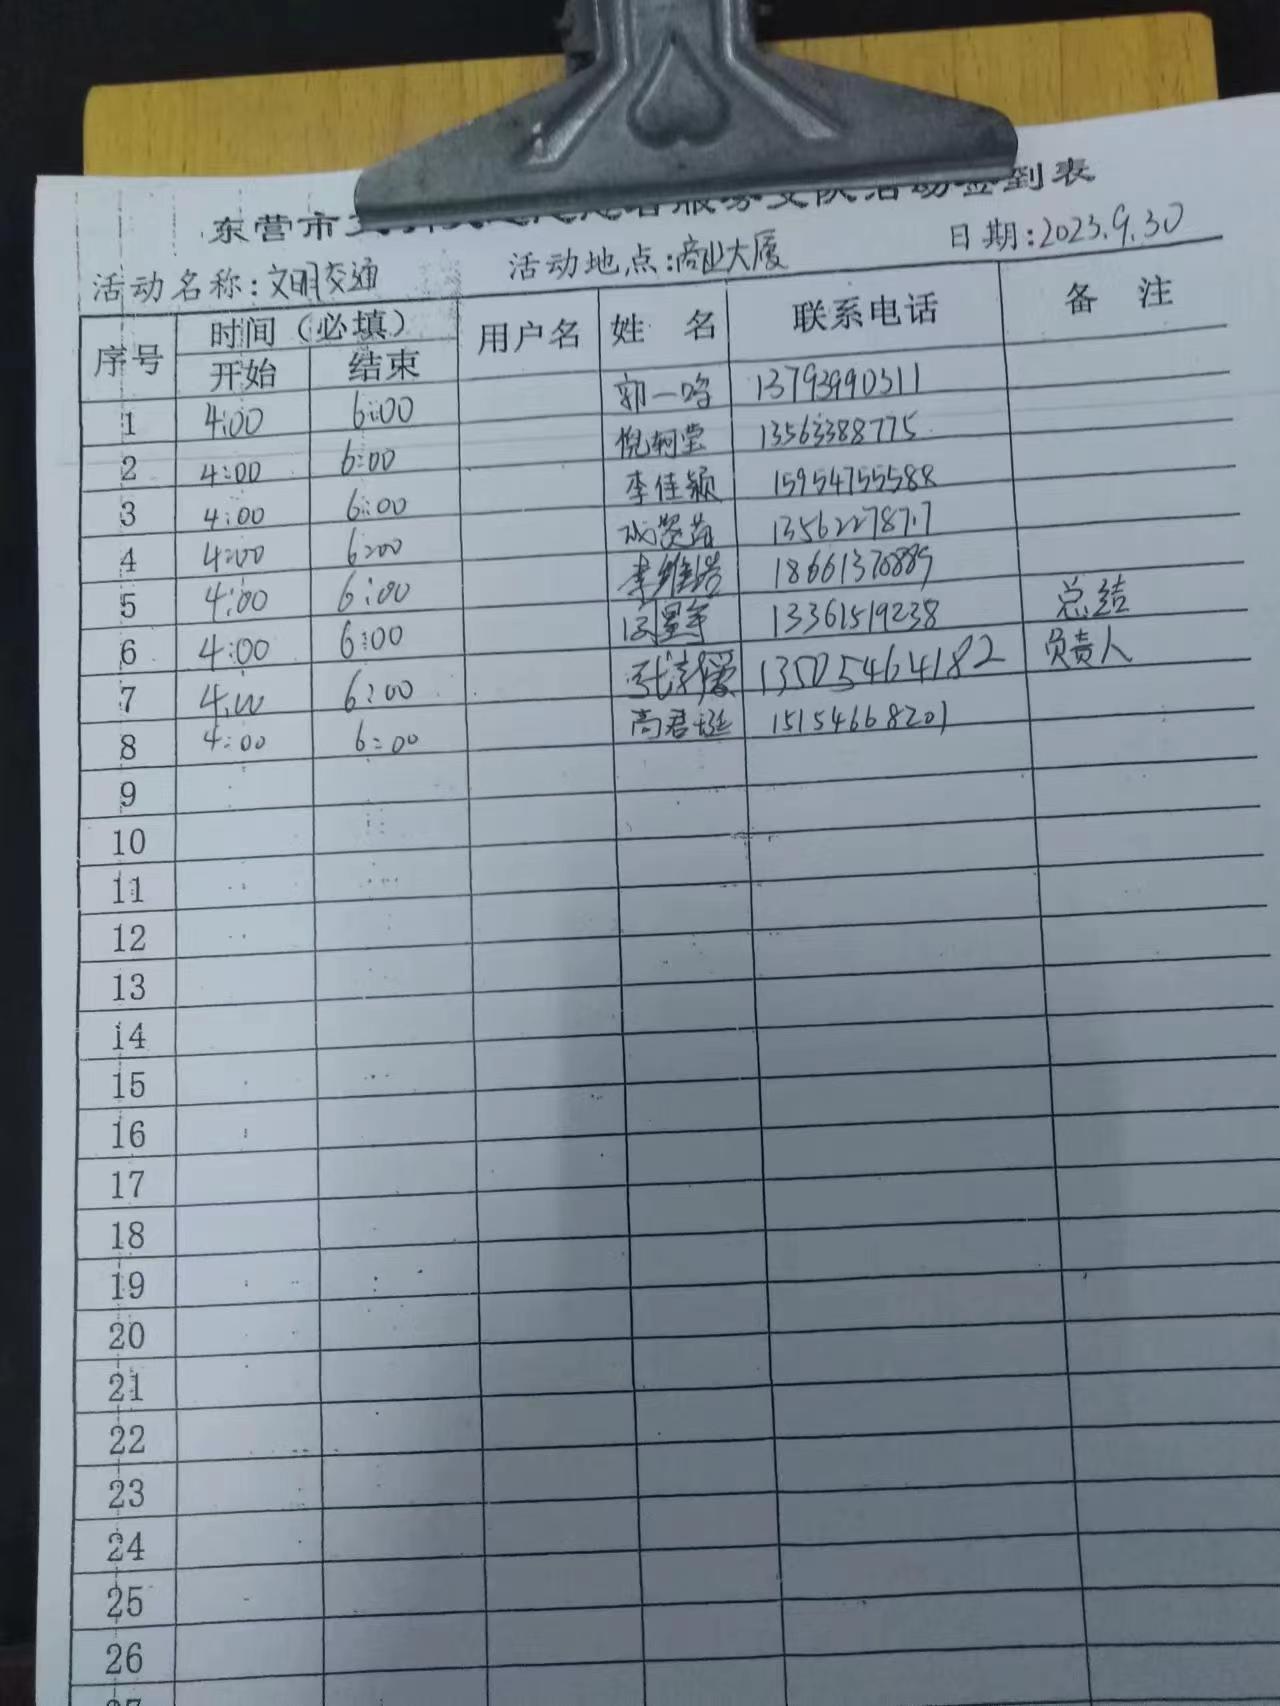 东营市 服务支队活动签到表
活动名称:文明交通 活动地点:商业大厦 日期:2023.9.30
序号 时间（必填） 用户名 姓 名 联系电话 备 注
开始 结束
1 4:00 6:00 郭一鸣 13793990311
2 4:00 6:00 倪轲莹 13563388775
3 4:00 6:00 李佳颖 15954755588
4 4:00 6:00
5 4:00 6:00 李维浩 18661370889
6 4:00 6:00 13361519238 总结
7 4:00 6:00 13505464182 负责人
8 4:00 6:00 高君珽 15154668201
9
10
11
12
13
14
15
16
17
18
19
20
21
22
23
24
25
26